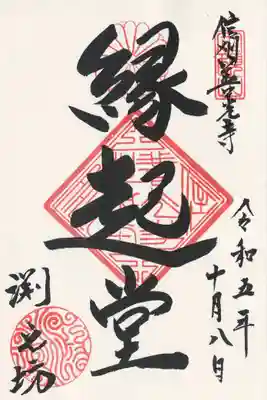 信州善光寺
令和五年
十月八日
縁起堂
渕之坊